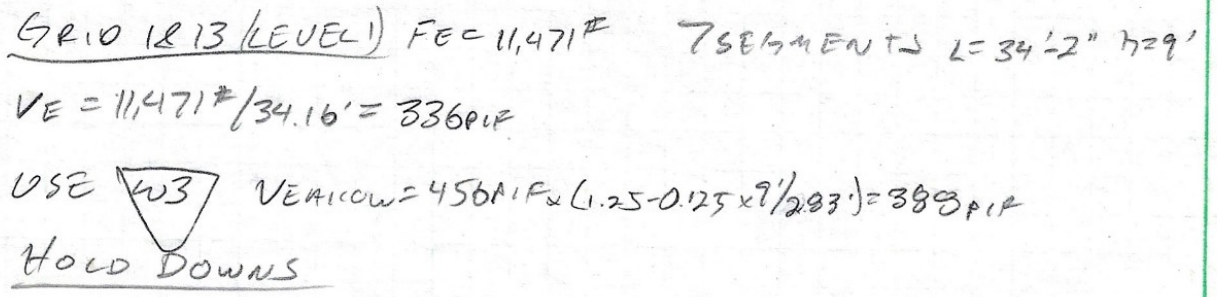 GRID 1&13 (LEVEL 1) FE = 11,471# 7 SEGMENTS L=34'-2" h=9'
VE = 11,471#/34.16' = 336PLF
USE W3 VEALLOW = 456PLF x (1.25-0.125 x 9'/2.83') = 388PLF
HOLD DOWNS